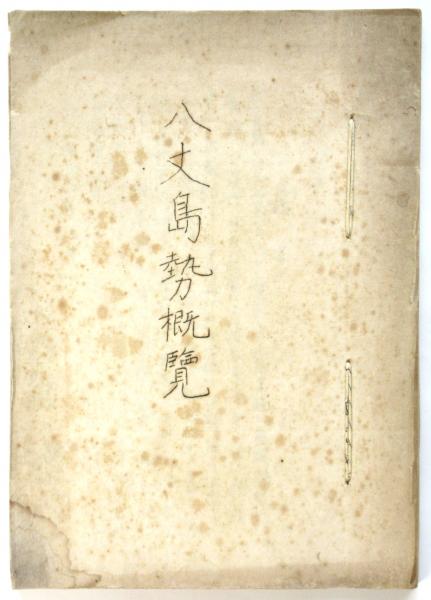 八丈島勢概覽